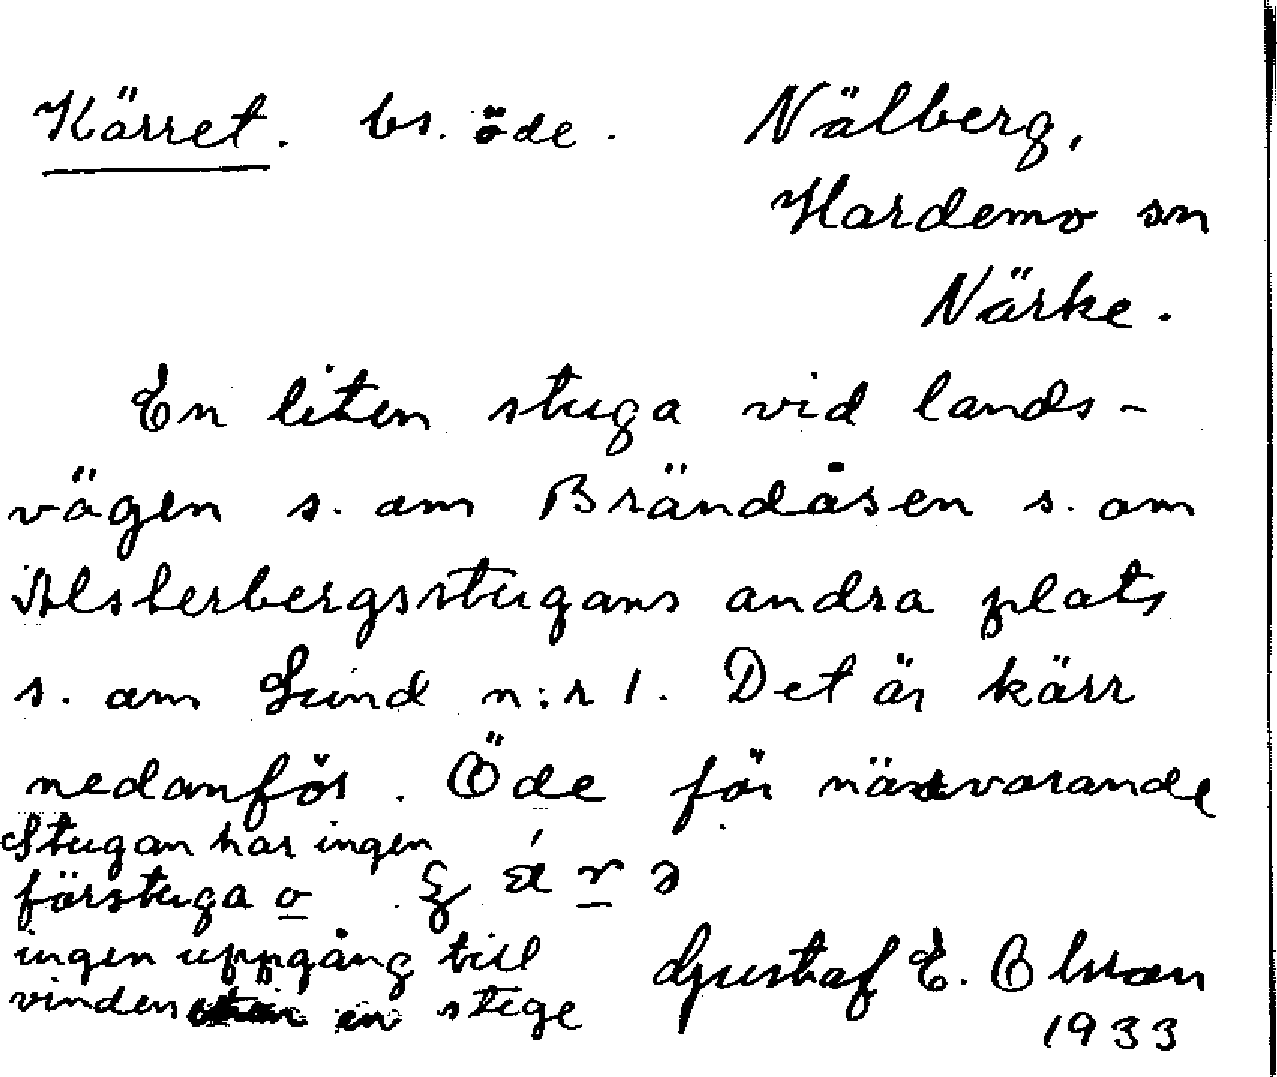 Kärret. bs. öde. Nälberg,
Hardemo sn
Närke.
En liten stuga vid lands-
vägen s. om Brändåsen s. om
Alsterbergsstugans andra plats
s. om Lund n:r 1. Det är kärr
nedanför. Öde för närvarande
Stugan har ingen
förstuga o
ingen uppgång till
vinden en stege
Gustaf E. Olsson
1933